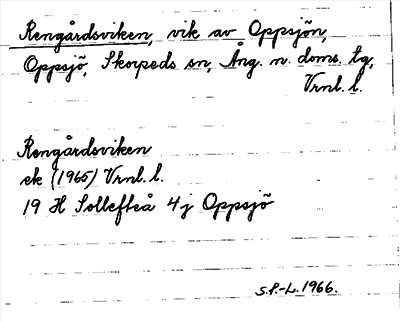 Rengårdsviken, vik av Oppsjön,
Oppsjö, Skorpeds sn, Ång. n. doms. tg,
Vrnl. l.
Rengårdsviken
ek (1965) Vrnl. l.
19 H Sollefteå 4 j Oppsjö
S.P.-L. 1966.